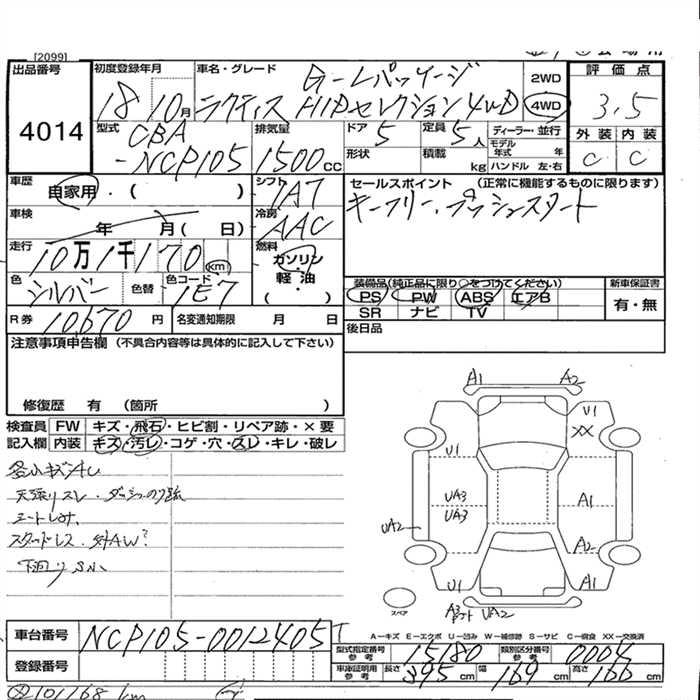 [2099]
出品番号
4014
初度登録年月
18 10月
車名・グレード
Gーレパッケージ
ラクティス HIDセレクション4WD
2WD
4WD
評価点
3.5
外装 内装
C C
型式
CBA
-NCP105
排気量
1500cc
ドア
5
形状
定員
5人
積載 kg
ディーラー・並行
モデル年式 年
ハンドル 左・右
車歴
自家用・( )
シフト
IAT
車検
年 月( 日)
冷房
AAC
走行
10万1千170 km
燃料
ガソリン・軽油・( )
色
シルバー
色替
色コード
1E7
R券 10,670 円
名変通知期限 月 日
セールスポイント (正常に機能するものに限ります)
キーフリー、プッシュスタート
装備品(純正品に限り○をつけてください)
PS PW ABS エアB
SR ナビ TV
新車保証書
有・無
後日品
注意事項申告欄 (不具合内容等は具体的に記入して下さい)
修復歴 有 (箇所 )
検査員記入欄
FW キズ・飛石・ヒビ割・リペア跡・×要
内装 キズ・汚レ・コゲ・穴・スレ・キレ・破レ
各小キズAU
天張りスレ・ダッシュのり跡
シートしみ
スタッドレス・外AW?
下廻りS小
A1 A2
U1
XX
U1
UA3
UA3
A1
UA2
A2
U1
A1
A3
UA2
スペア
A－キズ E－エクボ U－凹み W－補修跡 S－サビ C－腐食 XX－交換済
車台番号
NCP105-0012405
登録番号
型式指定番号 参考
15180
類別区分番号 参考
0004
車庫証明用 参考
長さ 395cm
幅 169cm
高さ 166cm
101168km